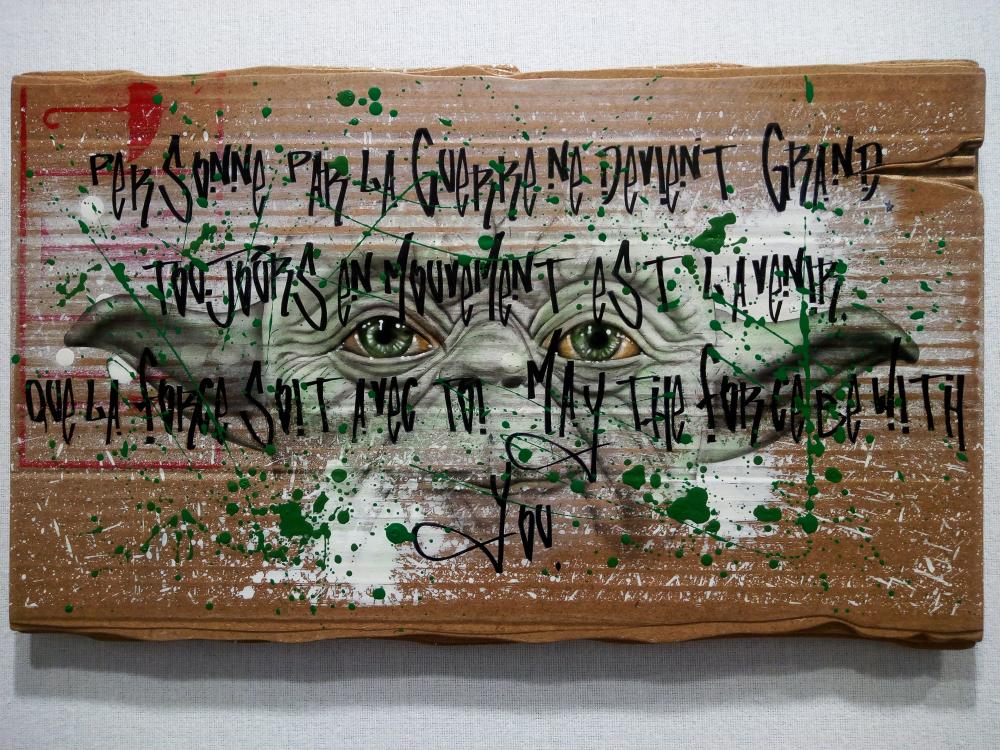 PERSONNE PAR LA GUERRE NE DEVIENT GRAND
TOUJOURS EN MOUVEMENT EST L'AVENIR.
QUE LA FORCE SOIT AVEC TOI MAY THE FORCE BE WITH
YOU.